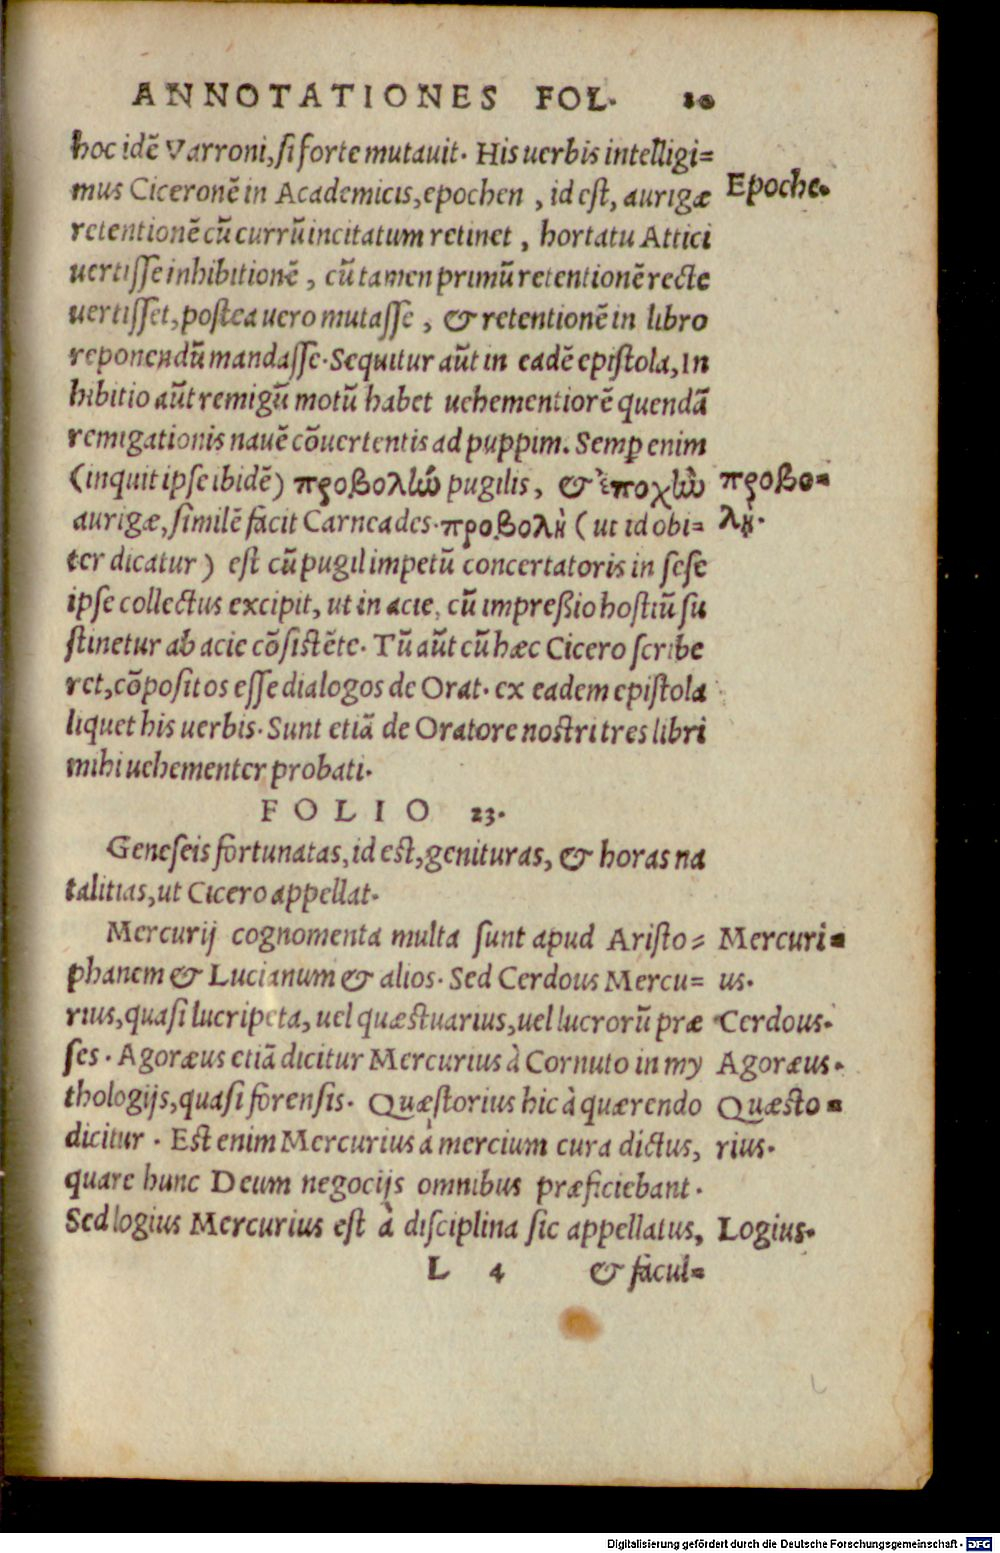 ANNOTATIONES FOL. 20
hoc idē Varroni, si forte mutauit. His uerbis intelligi=
mus Ciceronē in Academicis, epochen, id est, aurigæ
Epoche.
retentionē cū currū incitatum retinet, hortatu Attici
uertisse inhibitionē, cū tamen primū retentionē recte
uertisset, postea uero mutasse, & retentionē in libro
reponendū mandasse. Sequitur aūt in eadē epistola, In
hibitio aūt remigū motū habet uehementiorē quendā
remigationis nauē cōuertentis ad puppim. Semp̱ enim
(inquit ipse ibidē) προβολὼ pugilis, & ἐποχὼ
προβο=
aurigæ, similē facit Carneades. προβολὴ (ut id obi=
λὴ.
ter dicatur) est cū pugil impetū concertatoris in sese
ipse collectus excipit, ut in acie, cū impreßio hostiū su
stinetur ab acie cōsistēte. Tū aūt cū hæc Cicero scribe
ret, cōpositos esse dialogos de Orat. ex eadem epistola
liquet his uerbis. Sunt etiā de Oratore nostri tres libri
mihi uehementer probati.
FOLIO 23.
Geneseis fortunatas, id est, genituras, & horas na
talitias, ut Cicero appellat.
Mercurij cognomenta multa sunt apud Aristo=
Mercuri=
phanem & Lucianum & alios. Sed Cerdous Mercu=
us.
rius, quasi lucripeta, uel quæstuarius, uel lucrorū præ
Cerdous.
ses. Agoræus etiā dicitur Mercurius à Cornuto in my
Agoræus.
thologijs, quasi forensis. Quæstorius hic à quærendo
Quæsto=
dicitur. Est enim Mercurius à mercium cura dictus,
rius.
quare hunc Deum negocijs omnibus præficiebant.
Sed logius Mercurius est à disciplina sic appellatus,
Logius.
L 4 & facul=
Digitalisierung gefördert durch die Deutsche Forschungsgemeinschaft - DFG